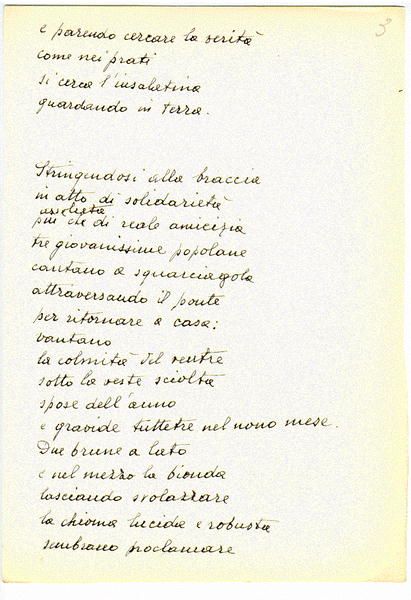 3
e parendo cercare la verità
come nei prati
si cerca l'insalatina
guardando in terra.
Stringendosi alla braccia
in atto di solidarietà
più che di reale amicizia
tre giovanissime popolane
cantano a squarciagola
attraversando il ponte
per ritornare a casa:
vantano
la colmità del ventre
sotto la veste sciolta
spose dell'anno
e gravide tuttetre nel nono mese.
Due brune a lato
e nel mezzo la bionda
lasciando svolazzare
la chioma lucida e robusta
sembrano proclamare